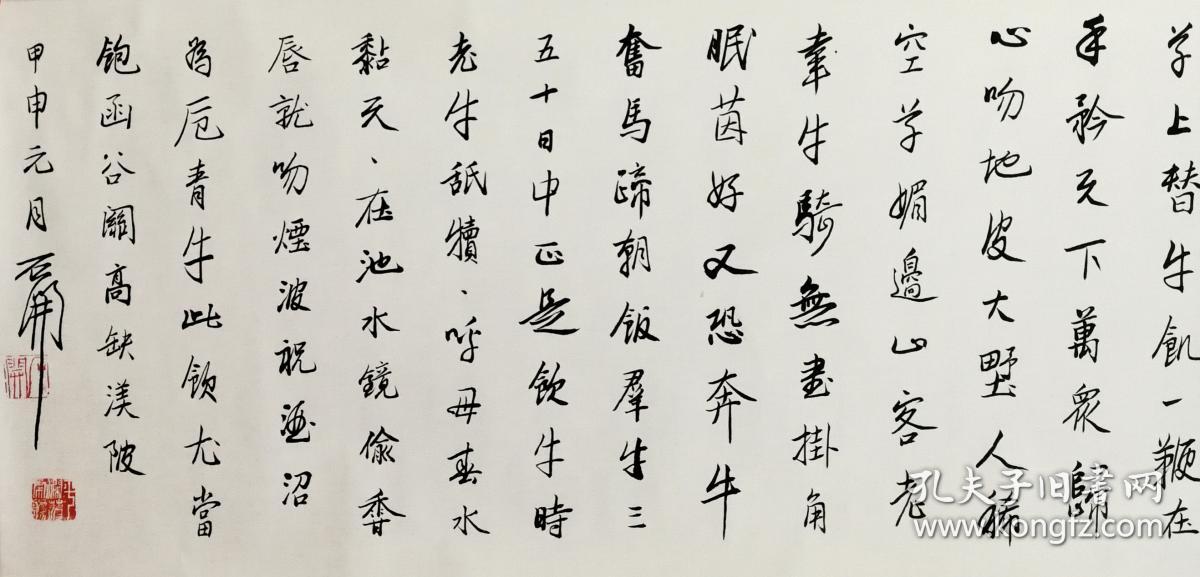 草上替牛飢一鞭在
手矜天下萬眾歸
心吻地皮大野人稀
空草媚邊山客老
牛騎無書掛角
眠茵好又恐奔牛
奮馬蹄朝飯羣牛三
五十日中正是飲牛時
老牛舐犢、呼母春水
黏天、在池水鏡偷香
唇就吻煙波祝酒沼
為卮青牛此飲尤當
飽函谷關高缺渼陂
甲申元月 石開
孔夫子旧書网
www.kongfz.com